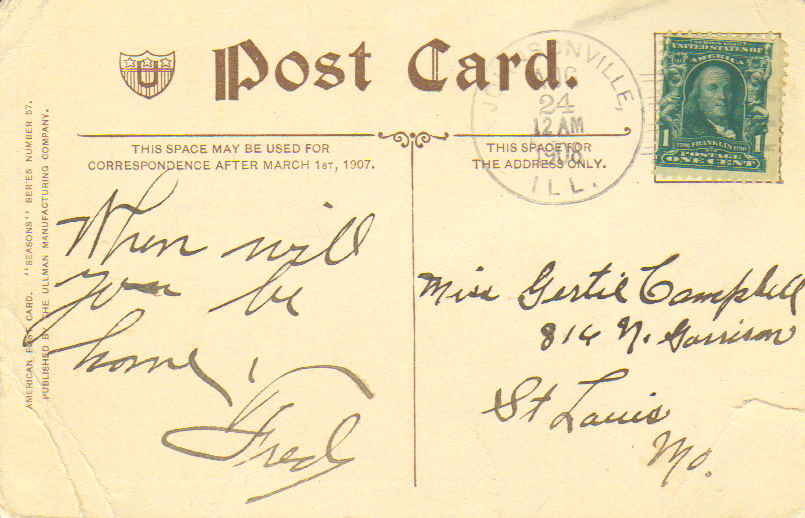 U
Post Card.
THIS SPACE MAY BE USED FOR
CORRESPONDENCE AFTER MARCH 1ST, 1907.
THIS SPACE FOR
THE ADDRESS ONLY.
JOHNSONVILLE,
AUG
24
12 AM
1908
ILL.
UNITED STATES OF
AMERICA
1 FRANKLIN 1
POSTAGE
ONE CENT
AMERICAN POST CARD. "SEASONS" SERIES NUMBER 57.
PUBLISHED BY THE ULLMAN MANUFACTURING COMPANY.
When will
you be
home
Fred
Miss Gertie Campbell
816 N. Garrison
St Louis
Mo.